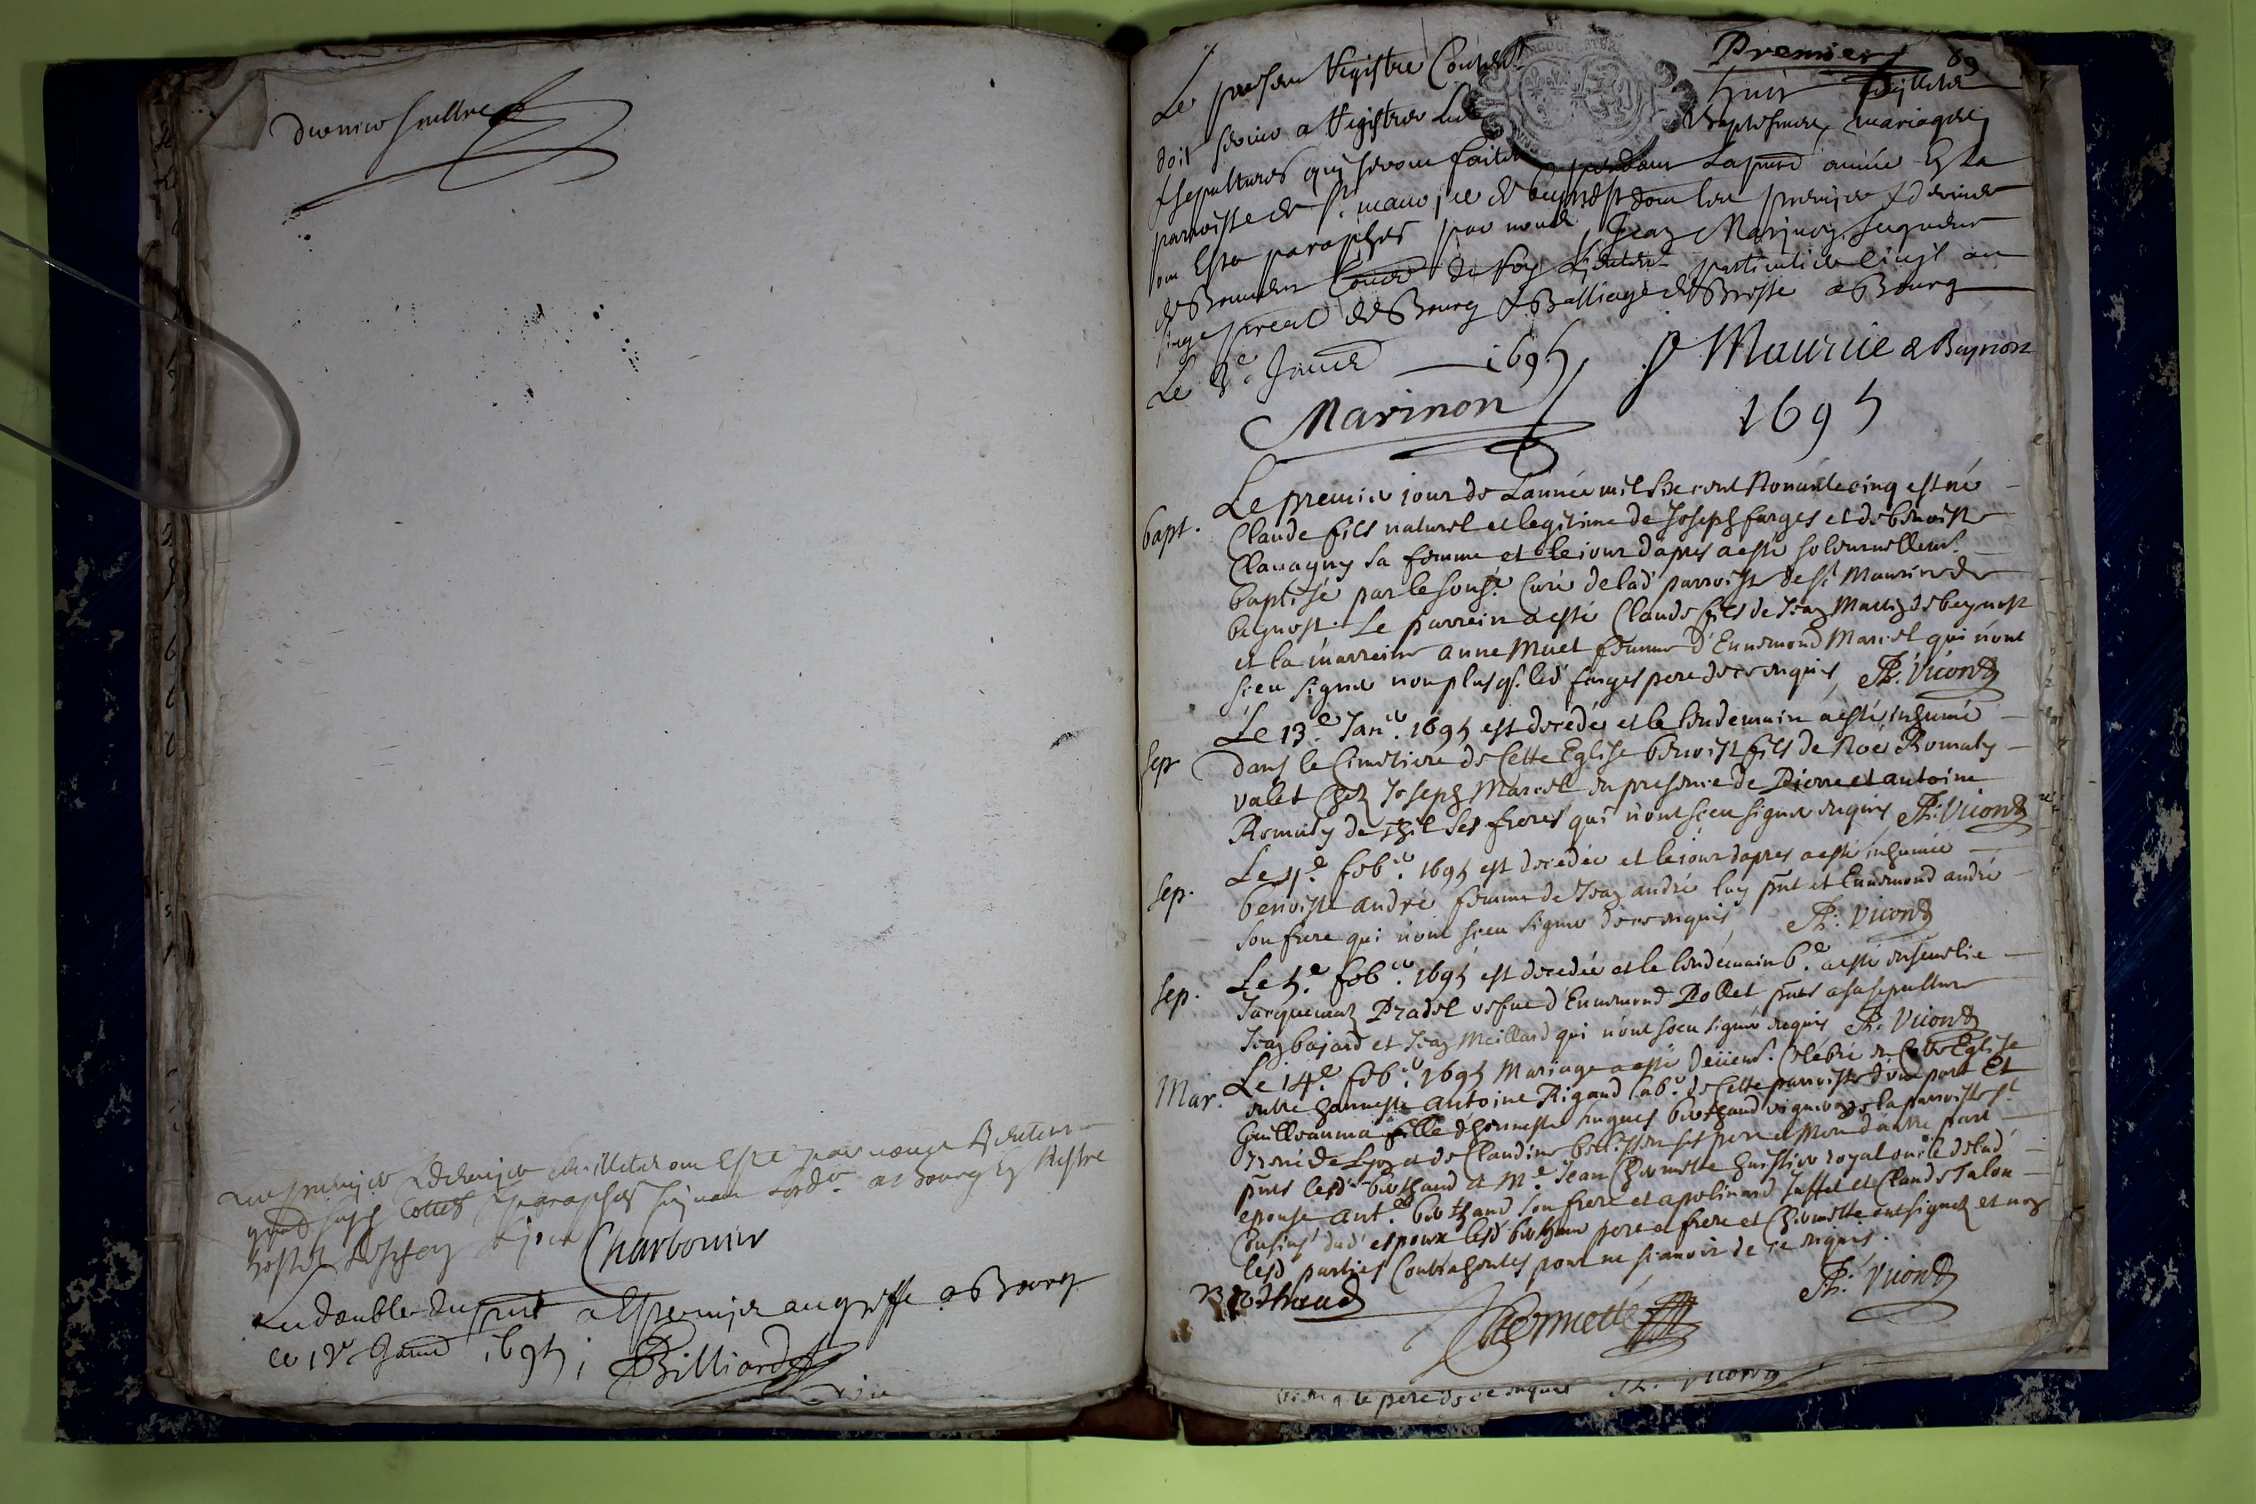 dernier feuillet
premier & dernier feuillets ont esté par nous
cottés & paraphés
Charbonnier
Le double du pnt a esté remis au greffe a Bourg
ce 12e Janvr 1695
Billiard
Premier 69
Le present Registre Content huit feuillets
doit servir a Registrer les Baptesmes, mariages
& sepultures qui seront faites pendant la pnte année En la
parroisse de St maurice de beynost dont les premier & dernier
ont Esté paraphés par nous Jean Marinon Seigneur
de Conser du Roy Lieutent particulier Civil au
siege preal de Bourg & Balliage de Bresse a Bourg
Le 3e Janvr 1695
St Maurice d Beynost
Marinon
1695
bapt.
Le premier jour de L'année mil six cent Nonante cinq est né
Claude fils naturel et legitime de Joseph farges et de benoiste
Clavagny sa femme et le jour d'apres a esté solennellemt
baptisé par le sousé Curé de lad parroisse de St Maurice de
beynost. Le parrein a esté Claude fils de Jean de beynost
et la marreine anne Muet femme d'Ennemond Marcel qui n'ont
sceu signer non plus q. led farges pere de ce requis, Ph. Vicond
Sep
Le 13e Janer 1695 est decedé et le lendemain a esté inhumé
dans le Cimetiere de Cette Eglise benoist fils de Noé Romaty
valet chez Joseph Marcel en presence de Pierre et antoine
Romaty de ses freres qui n'ont sceu signer requis Ph: Vicond
Sep.
Le 1e feber 1695 est decedée et le jour d'apres a esté inhumée
benoiste andré femme de Jean andré luy pnt et Ennemond andré
son frere qui n'ont sceu signer de ce requis Ph: Vicond
Sep.
Le 5e feber 1695 est decedée et le lendemain 6e a esté ensevelie
Jacquemaz Pradel vefue d'Ennemond Pollet pnts a sa sepulture
Jean bajard et Jean Meillard qui n'ont sceu signer requis Ph. Vicond
Mar.
Le 14e feber 1695 Mariage a esté Celebré en Cette Eglise
entre honneste Antoine Rigaud labr de Cette parroisse d'une part Et
Guilleauma fille d'honneste hugues berthaud vigneron de la parroisse St
Irené de Lyon et de Claudine ses pere et Mere d'autre part
pnts lesd berthaud et Me Jean Chermette huissier royal de lad
epouse ant. berthaud son frere et apolinard et Claude Talon
Cousins dud espoux lesd berthaud pere et frere et Chermette ont signez et non
lesd parties Contrahentes pour ne scavoir de ce requis.
Berthaud
Chermette
Ph: Vicond
le pere de ce requis Ph. Vicond